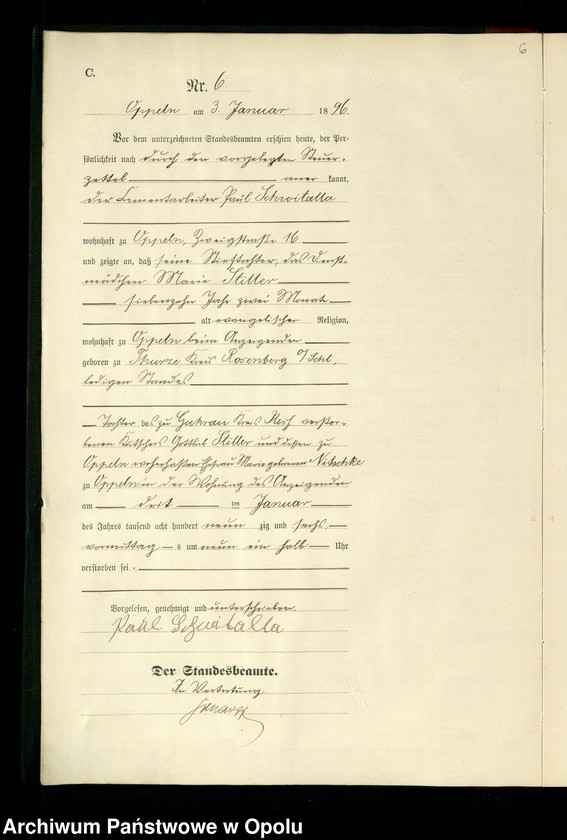 6
C.
Nr. 6.
Oppeln am 3. Januar 1896.
Vor dem unterzeichneten Standesbeamten erschien heute, der Per-
sönlichkeit nach durch den vorgelegten Steuer-
zettel aner kannt,
der Cementarbeiter Paul Schwitalla
wohnhaft zu Oppeln, Zweigstraße 16
und zeigte an, daß seine Stieftochter, das Dienst-
mädchen Marie Stiller
siebenzehn Jahr zwei Monate
alt evangelischer Religion,
wohnhaft zu Oppeln beim Anzeigenden
geboren zu Thurze Kreis Rosenberg O/Schl,
ledigen Standes
Tochter des zu Kreis verstor-
benen Kutschers Gottlieb Stiller und dessen zu
Oppeln wohnhaften Ehefrau Marie geborenen Nitschke
zu Oppeln in der Wohnung des Anzeigenden
am drit ten Januar
des Jahres tausend acht hundert neun zig und sechs
vormittag s um neun ein halb Uhr
verstorben sei.
Vorgelesen, genehmigt und unterschrieben.
Paul Schwitalla
Der Standesbeamte.
In Vertretung
Archiwum Państwowe w Opolu